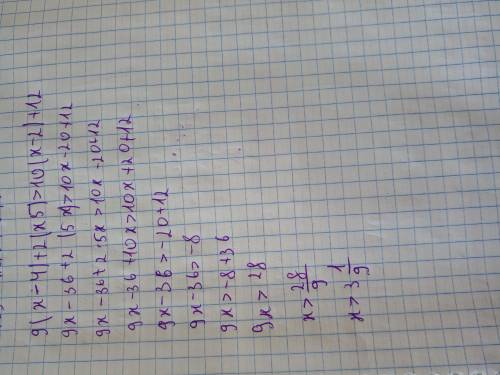 9(x-4)+2(x5)>10(x-2)+12
9x-36+2(5x)>10x-20+12
9x-36+2·5x>10x-20+12
9x-36+10x>10x+20+12
9x-36>-20+12
9x-36>-8
9x>-8+36
9x>28
x>28/9
x>3 1/9